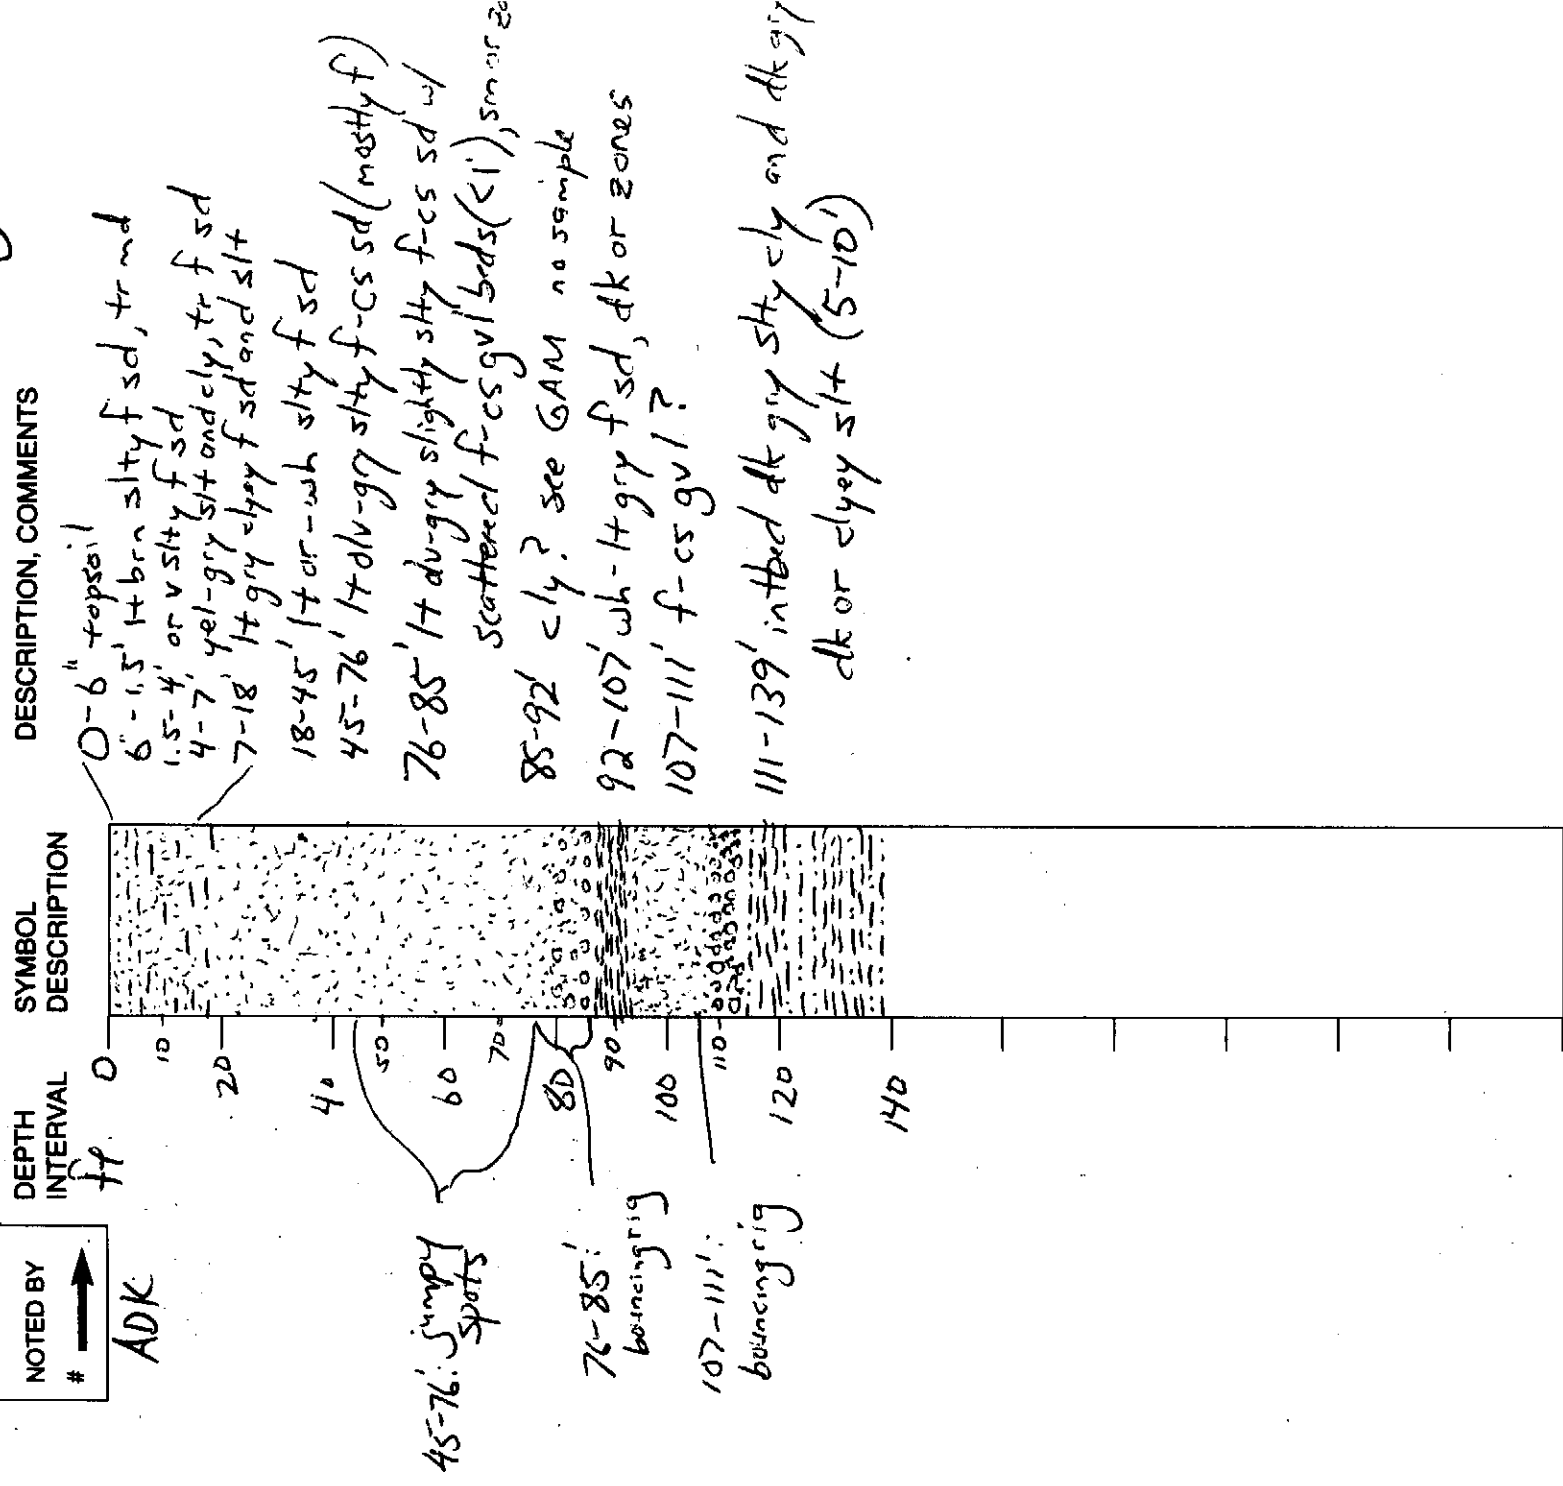 NOTED BY
#
ADK
DEPTH
INTERVAL
ft
SYMBOL
DESCRIPTION
DESCRIPTION, COMMENTS
0
10
20
40
50
60
70
80
90
100
110
120
140
45-76': jumpy
spots
76-85':
bouncing rig
107-111':
bouncing rig
0-6" topsoil
6"-1.5' lt brn slty f sd, tr md
1.5-4' or v slty f sd
4-7' yel-gry slt and cly, tr f sd
7-18' lt gry clyey f sd and slt
18-45' lt or-wh slty f sd
45-76' lt dlv-gry slty f-cs sd (mostly f)
76-85' lt dv-gry slightly slty f-cs sd w/
scattered f-cs gvl beds (<1'), sm or
85-92' cly? see GAM no sample
92-107' wh-lt gry f sd, dk or zones
107-111' f-cs gvl?
111-139' intbed dk gry slty cly and dk gry
dk or clyey slt (5-10')